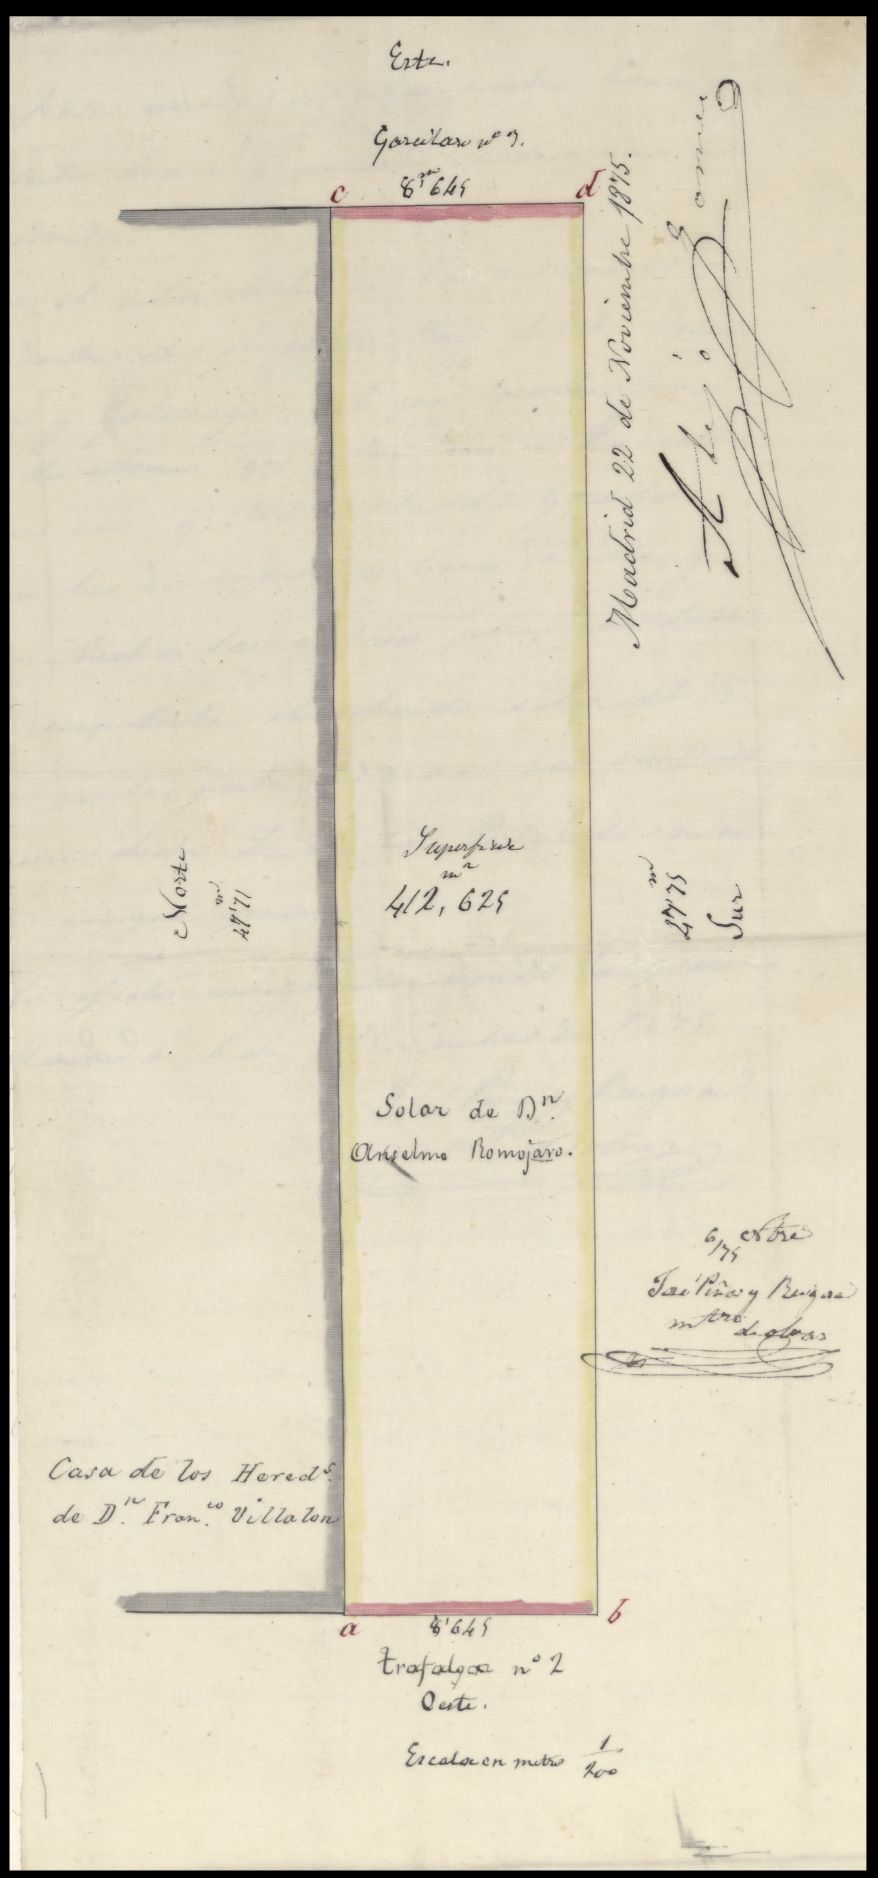 Este.
Garcilaso nº 7.
c 8'm645 d
Madrid 22 de Noviembre 1875.
Alejo Gomez
Norte
m
47'71
Superficie
m²
412,625
m
47'75
Sur
Solar de Dn.
Anselmo Romojaro.
6/75 Nbre
José Piñas y
mtro de obras
Casa de los Hereds.
de Dn. Franco. Villalon
a 8'645 b
trafalgar nº 2
Oeste.
Escala en metros 1/200